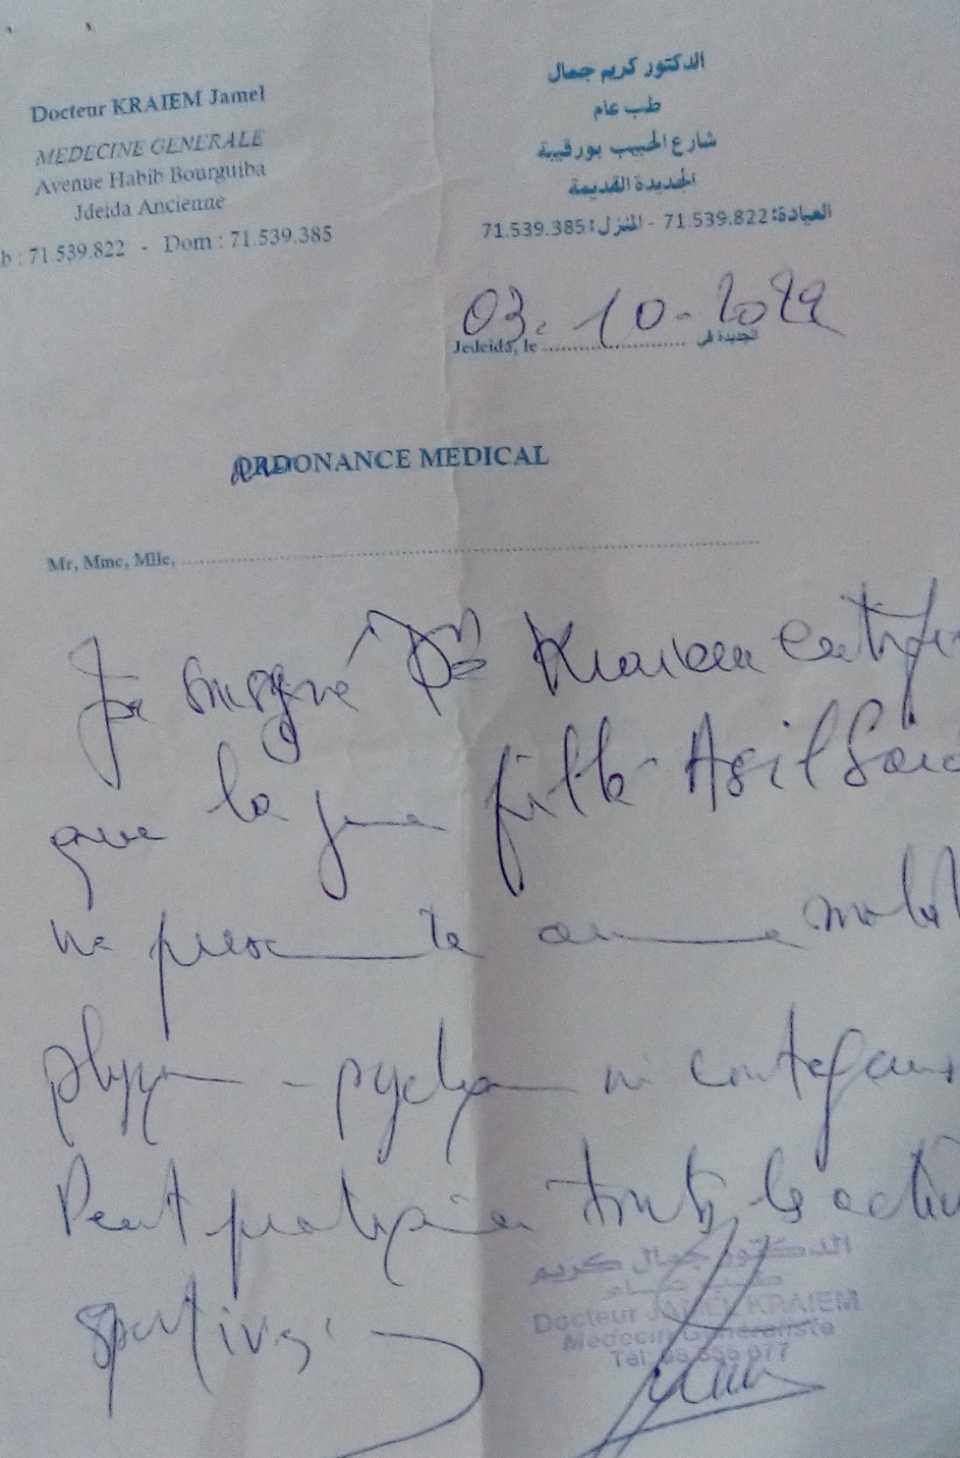 Docteur KRAIEM Jamel
MEDECINE GENERALE
Avenue Habib Bourguiba
Jdeida Ancienne
b : 71.539.822 - Dom : 71.539.385
الدكتور كريم جمال
طب عام
شارع الحبيب بورقيبة
الجديدة القديمة
العيادة: 71.539.822 - المنزل: 71.539.385
03. 10-2022
Jedeida, le ........................... الجديدة في
ORDONANCE MEDICAL
Mr, Mme, Mlle, ...............................................................................................
Je sousigné Dr Kraiem certifie
que la jeune fille Asil Said
ne presente aucune
physique - psychique ni contagieuse
Peut pratiquer touts les activ
sportives.
الدكتور جمال كريم
طب عام
Docteur JAMEL KRAIEM
Médecin Généraliste
Tél: